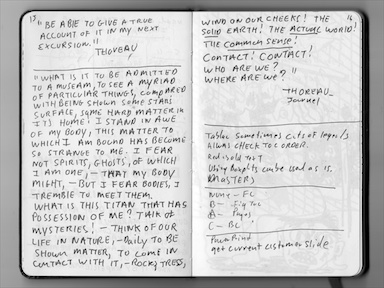 15
"BE ABLE TO GIVE A TRUE
ACCOUNT OF IT IN MY NEXT
EXCURSION."
THOREAU
"WHAT IS IT TO BE ADMITTED
TO A MUSEUM, TO SEE A MYRIAD
OF PARTICULAR THINGS, COMPARED
WITH BEING SHOWN SOME STARS
SURFACE, SOME HARD MATTER IN
ITS HOME! I STAND IN AWE
OF MY BODY, THIS MATTER TO
WHICH I AM BOUND HAS BECOME
SO STRANGE TO ME. I FEAR
NOT SPIRITS, GHOSTS, OF WHICH
I AM ONE, – THAT MY BODY
MIGHT, – BUT I FEAR BODIES, I
TREMBLE TO MEET THEM.
WHAT IS THIS TITAN THAT HAS
POSSESSION OF ME? TALK OF
MYSTERIES! – THINK OF OUR
LIFE IN NATURE, – DAILY TO BE
SHOWN MATTER, TO COME IN
CONTACT WITH IT, – ROCKS, TREES,
16
WIND ON OUR CHEEKS! THE
SOLID EARTH! THE ACTUAL WORLD!
THE COMMON SENSE!
CONTACT! CONTACT!
WHO ARE WE?
WHERE ARE WE?"
–THOREAU
Journal
Tables sometimes
check TOC order.
Red: bold text
Using can be used as is.
MASTERS
None – FC
B –
A – Pages
C – BC
PowerPoint
get current customer slide